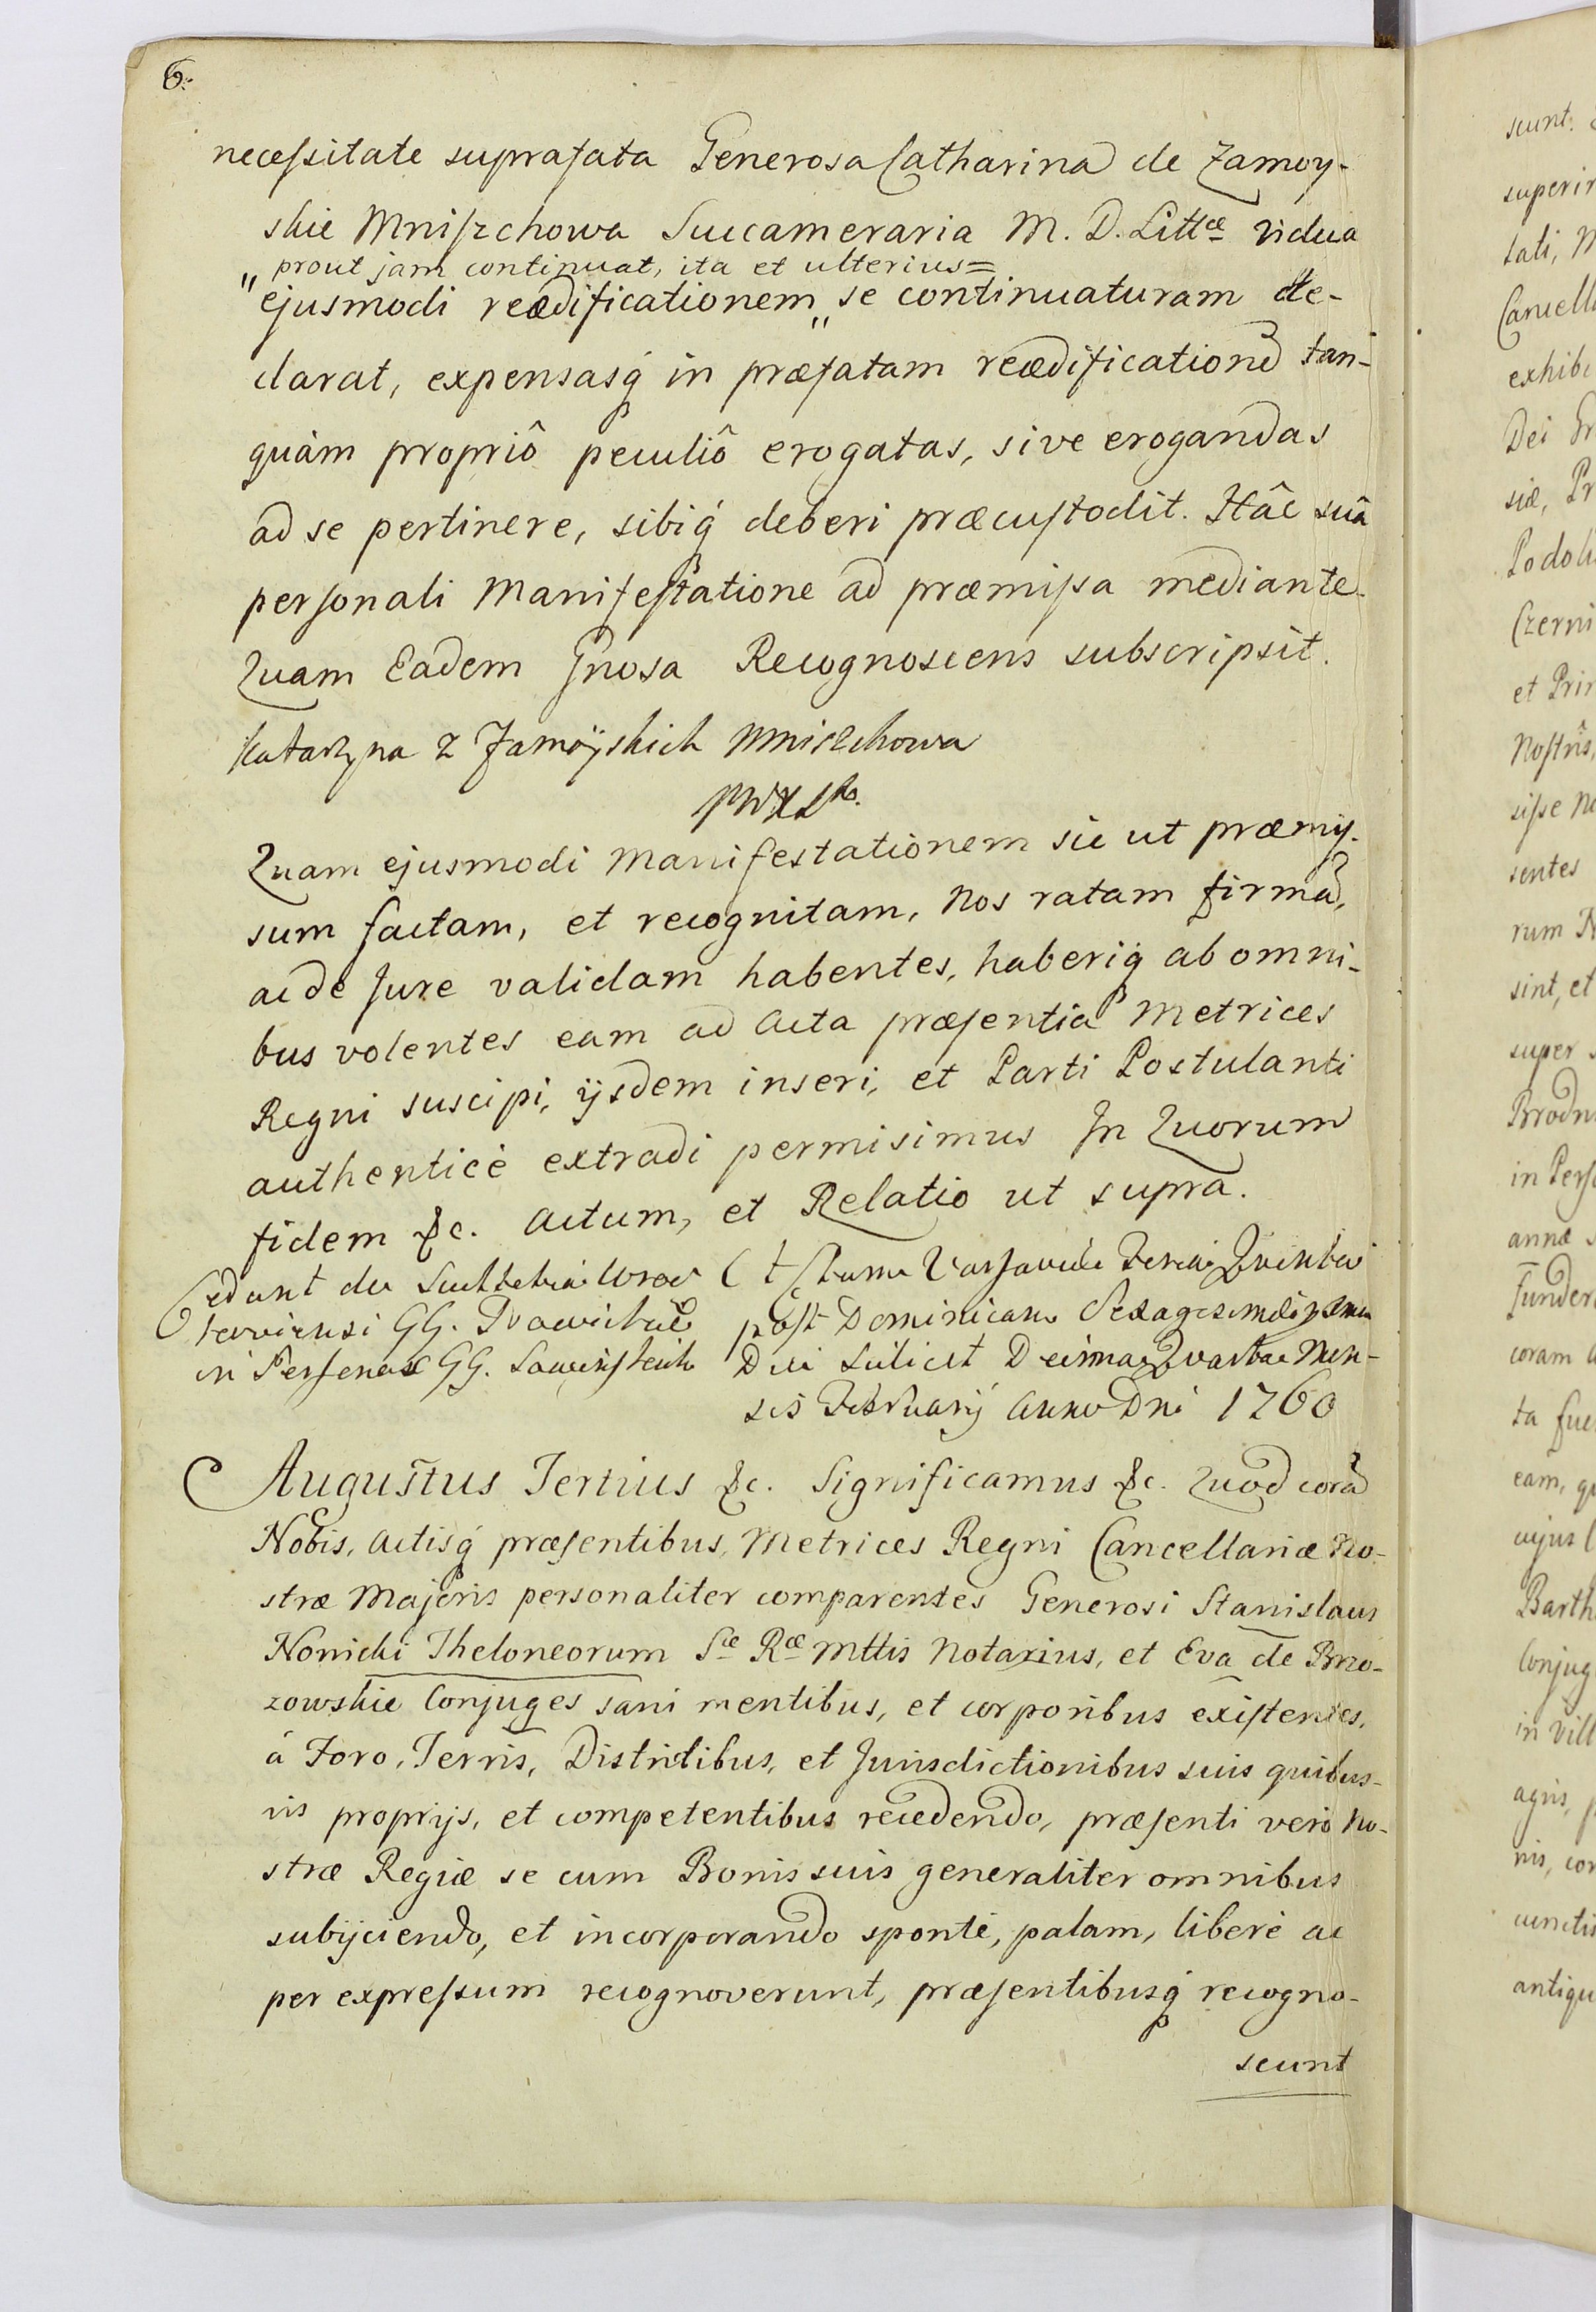 6.
necessitate suprafata Generosa Catharina de Zamoy-
skie Mniszchowa Succameraria M. D. Littæ vidua
prout jam continuat, ita et ulterius=
"ejusmodi reædificationem" se continuaturam de-
clarat, expensasq́ in præfatam reædificationẽ tan-
quàm propriô peculiô erogatas, sive erogandas
ad se pertinere, sibiq́ deberi præcustodit. Hâc suâ
personali Manifestatione ad præmissa mediante.
Quam Eadem Gnosa Recognoscens subscripsit.
Katarzyna z Zamöyskich Mniszchowa
Quam ejusmodi Manifestationem sic ut præmis-
sum factam, et recognitam, Nos ratam firmã,
ac de Jure validam habentes, haberiq́ ab omni-
bus volentes eam ad Acta præsentia Metrices
Regni suscipi, ijsdem inseri, et Parti Postulanti
authenticè extradi permisimus In Quorum
fidem &c. Actum, et Relatio ut supra.
Actum Varsaviæ Feria Quinta
post Dominicam Sexagesimæ
Die scilicet Decima Quarta Men-
sis Februarij Anno Dni 1760
Cedunt de
GG.
in Personas GG.
Augustus Tertius &c. Significamus &c. Quod corã
Nobis, Actisq́ præsentibus, Metrices Regni Cancellariæ No-
stræ Majoris personaliter comparentes Generosi Stanislaus
Nonicki Theloneorum Sæ Ræ Mttis Notarius, et Eva de Brzo-
zowskie Conjuges sani mentibus, et corporibus existentes,
á Foro, Terris, Districtibus, et Jurisdictionibus suis quibus-
vis proprijs, et competentibus recedendo, præsenti verò No-
stræ Regiæ se cum Bonis suis generaliter omnibus
subijciendo, et incorporando spontè, palam, liberè ac
per expressum recognoverunt, præsentibusq́ recogno-
scunt
scunt.
superin
tati, M
Cancella
exhibe
Dei Gr
siæ, Pr
Podoli
Czerni
et Prin
Nostris,
sisse No
sentes
rum N
sint, et
super s
Brodn
in Perso
annæ s
Funder
coram a
ta fue
eam, qu
cujus C
Barth
Conjug
in Vill
agris, p
nis, cor
cunctis
antiqu